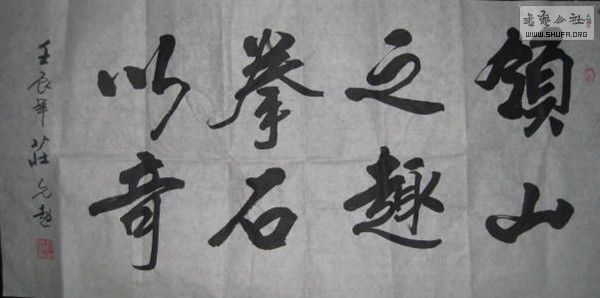 領山
之趣
拳石
以奇
壬辰年 莊允超
書藝公社
WWW.SHUFA.ORG